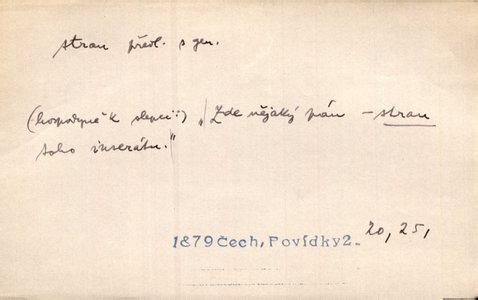 stran předl. s gen.
(hospodyně k slepci:) „Zde nějaký pán – stran
toho inserátu."
1879 Čech, Povídky 2. 20, 25,